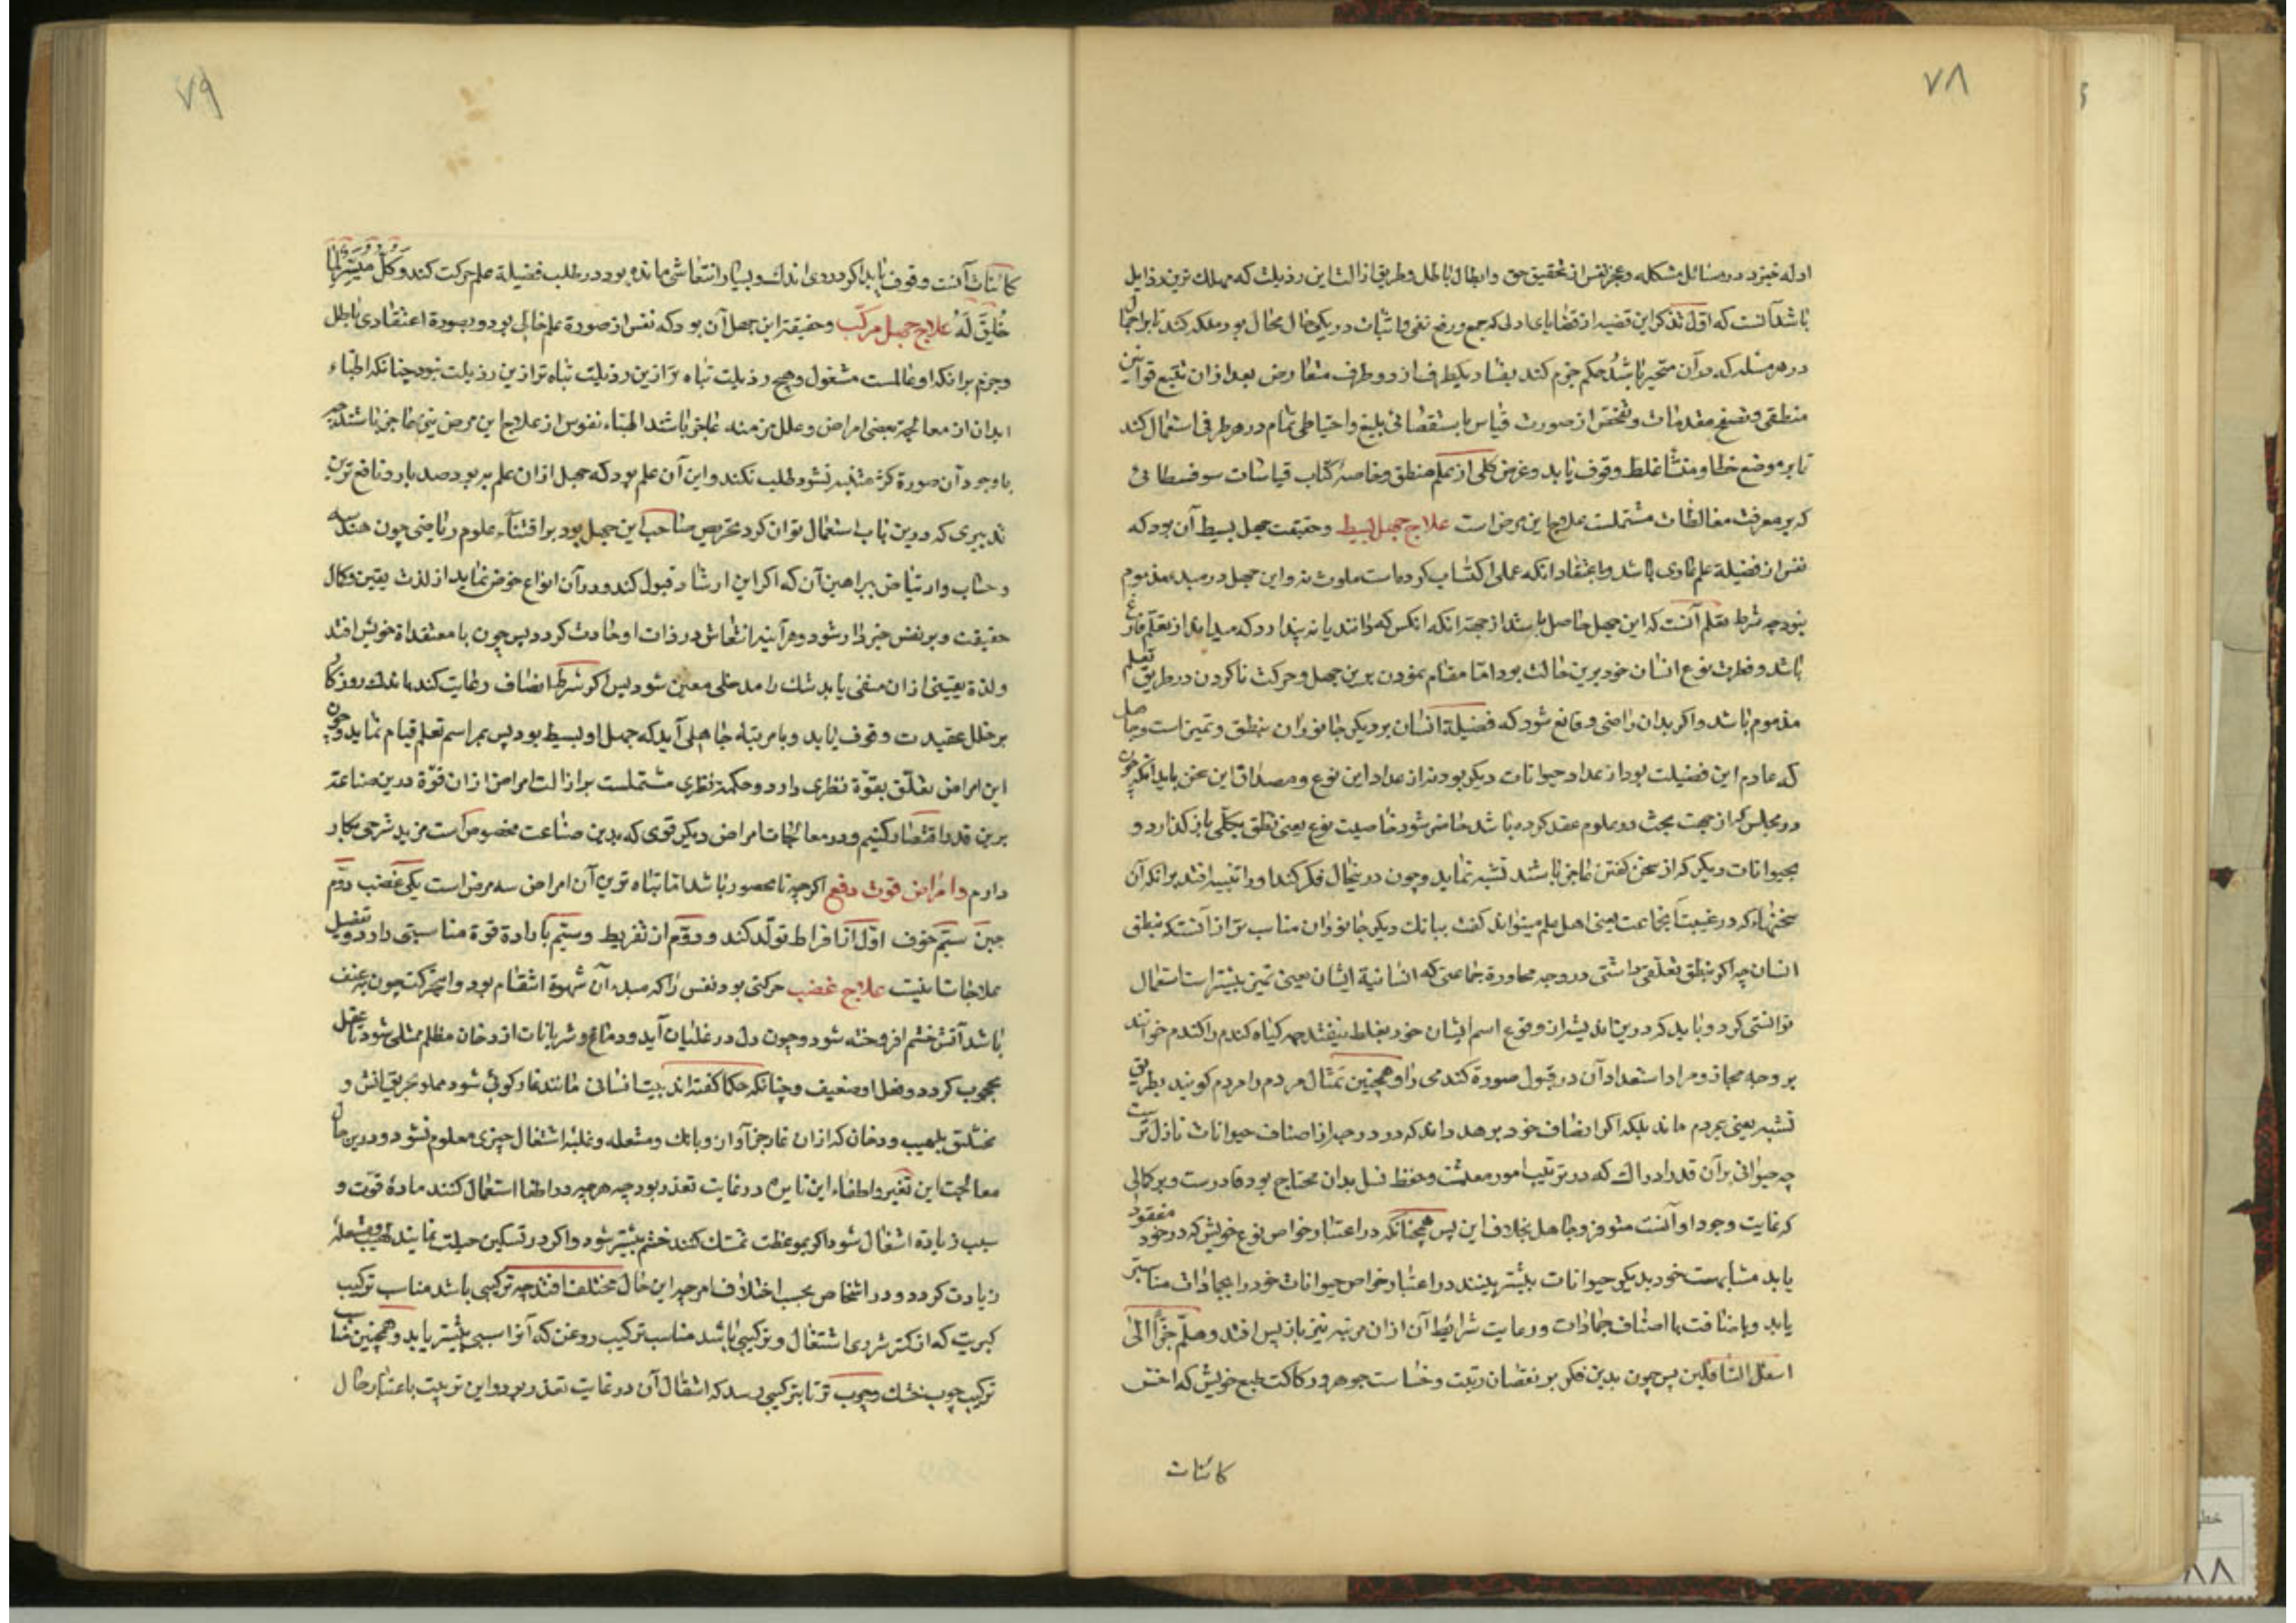 ۷۸
ادله خیزد در مسائل مشکله و عجز نفس از تحقیق حق و ابطال باطل و طریق ازالت این رذیلت که مهلک‌ترین رذایل
باشد آنست که اول تذکر این قضیه از قضایای اولی که جمع و رفع نفی و اثبات در یکحال محال بود ملکه کند تا بر اجمال
در هر مسئله که در آن متحیر باشد حکم جزم کند بفساد یکطرف از دو طرف متعارض بعد از آن تتبع قوانین
منطقی و تصفح مقدمات و تفحص از صورت قیاس باستقصائی بلیغ و احتیاطی تمام در هر طرفی استعمال کند
تا بر موضع خطا و منشأ غلط وقوف یابد و غرض کلی از علم منطق و خاصه کتاب قیاسات سوفسطائی
که بر معرفت مغالطات مشتملست علاج این مرض است علاج جهل بسیط و حقیقت جهل بسیط آن بود که
نفس از فضیلة علم عاری باشد و باعتقاد آنکه علمی اکتساب کرده است ملوث نه و این جهل در مبدء مذموم
نبود چه شرط تعلم آنست که این جهل حاصل باشد از جهة آنکه آنکس که داند یا نه پندارد که میداند از تعلم فارغ
باشد و فطرت نوع انسان خود برین حالت بود اما مقام نمودن برین جهل و حرکت ناکردن در طریق تعلم
مذموم باشد و اگر بدان راضی و قانع شود که فضیلة انسان بر دیگر جانوران بنطق و تمیز است و جاهل
که عادم این فضیلت بود از عداد حیوانات دیگر بود نه از عداد این نوع و مصداق این سخن یابد آنکه چون
در مجلس که از جهت بحث در علوم عقد کرده باشد حاضر شود خاصیت نوع یعنی نطق بکلی باز گذارد و
بحیوانات دیگر که از سخن گفتن عاجز باشند تشبه نماید و چون درینحال فکر کند او را تنبیه افتد برانکه آن
سخنهاء که در غیبت جماعت یعنی اهل علم میتواند گفت ببانک دیگر جانوران مناسب‌تر از آنست که بنطق
انسان چه اگر بنطق تعلقی داشتی در وجه محاورة جماعتی که انسانیة ایشان یعنی تمیز بیشتر است استعمال
توانستی کرد و باید که درین اندیشه از وقوع اسم ایشان خود بغلط نیفتد چه گیاه گندم را گندم خوانند
بر وجه مجاز و مراد استعداد آن در قبول صورة گندمی را و همچنین تمثال مردم را مردم گویند بطریق
تشبه یعنی بمردم ماند بلکه اگر انصاف خود بدهد داند که در درجه از اصناف حیوانات نازل‌تر است
چه حیوانی بر آن قدر ادراک که در ترتیب امور معیشت و حفظ نسل بدان محتاج بود قادرست و بر کمالی
که غایت وجود او آنست متوفر و جاهل بخلاف این پس همچنانکه در اعتبار خواص نوع خویش که در خود مفقود
یابد مشابهت خود بدیگر حیوانات بیشتر بینند در اعتبار خواص حیوانات خود را بجمادات مناسبتر
یابد و باضافت با اصناف جمادات و رعایت شرائط آن از ان مرتبه نیز باز پس افتد و هلم جرا الی
اسفل السافلین پس چون بدین فکر بر نقصان رتبت و خساست جوهر و رکاکت طبع خویش که اخس
کائنات
۷۹
کائنات آنست وقوف یابد اگر در وی اندک و بسیار انتعاشی مانده بود در طلب فضیلة علم حرکت کند و کل میسر لما
خلق له علاج جهل مرکب و حقیقة این جهل آن بود که نفس از صورة علم خالی بود و بصورة اعتقادی باطل
و جزم برانکه او عالمست مشغول و هیچ رذیلت تباه‌تر ازین رذیلت نبود چنانکه اطباء
ابدان از معالجة بعضی امراض و علل مزمنه عاجز باشند اطباء نفوس از علاج این مرض نیز عاجز باشند چه
باوجود آن صورة کژ متنبه نشود طلب نکند و این آن علم بود که جهل از ان علم به بود صد بار و نافع‌ترین
تدبیری که درین باب استعمال توان کرد تحریض صاحب این جهل بود بر اقتناء علوم ریاضی چون هندسه
و حساب و ارتیاض ببراهین آن که اگر این ارشاد قبول کند و در آن انواع خوض نماید از لذت یقین و کمال
حقیقت و برد نفس خبردار شود و هرآینه انتعاش در ذات او حادث گردد پس چون با معتقدات خویش افتد
و لذة یقینی از ان منفی یابد شک را مدخلی معین شود پس اگر شرط انصاف رعایت کند باندک روزکار
بر خلل عقیدت وقوف یابد و بامرتبة جاهلی آید که جهل او بسیط بود پس بمراسم تعلم قیام نماید و چون
این امراض تعلق بقوة نظری دارد و حکمة نظری مشتملست بر ازالت امراض از ان قوة درین صناعة
برین قدر اقتصار کنیم و در معالجات امراض دیگر قوی که بدین صناعت مخصوص است مزید شرحی بکار
داریم و امراض قوت دفع اگرچه نامحصور باشد اما تباه‌ترین آن امراض سه مرض است یکی غضب دوم
جبن سیم خوف اول از افراط تولد کند و دوم از تفریط و سیم با ردائة قوة مناسبتی دارد و تفصیل
علاجات اینست علاج غضب حرکتی بود نفس را که مبدء آن شهوة انتقام بود و این حرکت چون بعنف
باشد آتش خشم افروخته شود و چون دل در غلیان آید و دماغ و شریانات از دخان مظلم ممتلی شود تا عقل
محجوب گردد و فعل او ضعیف و چنانکه حکما گفته‌اند بیت انسانی مانند غار کوهی شود مملو بحریق آتش و
مختنق بلهیب و دخان که از ان غار جز آواز و بانک و مشعله و غلبه اشتعال چیزی معلوم نشود و درین حال
معالجت این تغیر و اطفاء این نایره در غایت تعذر بود چه هرچه در اطفا استعمال کنند مادة قوت و
سبب زیادة اشتعال شود اگر بموعظت تمسک کنند خشم بیشتر شود و اگر در تسکین حیلت نمایند لهیب و مشعله
زیادت گردد و در اشخاص بحسب اختلاف امزجه این حال مختلف افتد چه ترکیبی باشد مناسب ترکیب
کبریت که از کمتر شرری اشتعال و ترکیبی باشد مناسب ترکیب روغن که آنرا سببی بیشتر باید و همچنین مناسب
ترکیب چوب خشک و چوب تر تا بترکیبی رسد که اشتعال آن در غایت تعذر بود و این ترتیب باعتبار حال